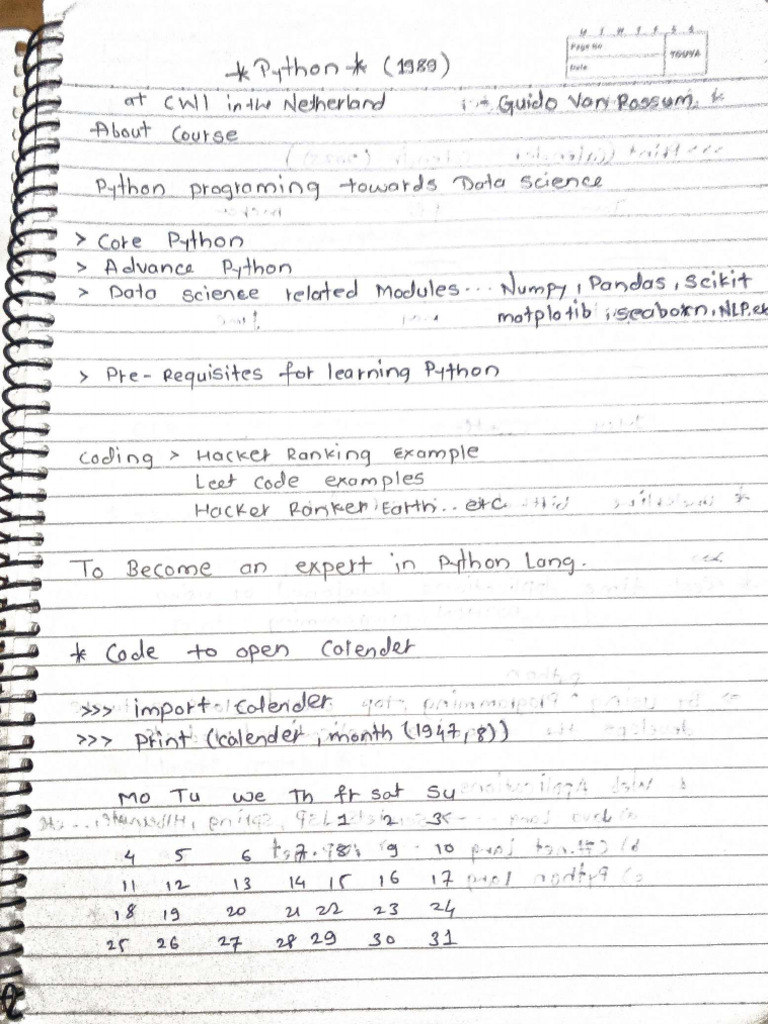 M T W T F S S
Page No
Date
YOUVA
* Python * (1989)
at CWI in the Netherland :- Guido Van Rossum. *
About Course
Python programing towards Data science
> Core Python
> Advance Python
> Data science related Modules... Numpy, Pandas, Scikit
matplotib, seaborn, NLP, etc
> Pre-Requisites for learning Python
Coding > Hacker Ranking Example
Leet Code examples
Hacker Ranker Earth.. etc
To Become an expert in Python Lang.
* Code to open Calender
>>> import calender
>>> print (calender, month (1947, 8))
Mo Tu We Th fr sat Su
1 2 3
4 5 6 7 8 9 10
11 12 13 14 15 16 17
18 19 20 21 22 23 24
25 26 27 28 29 30 31